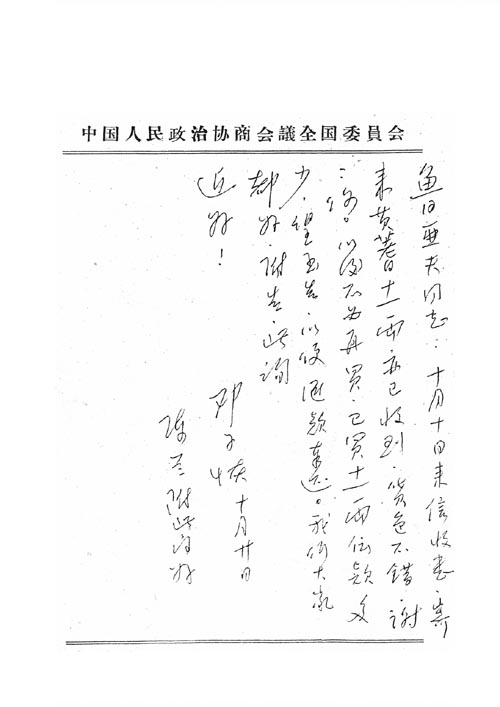 中国人民政治协商会議全国委員会
魯亚夫同志：十月十日来信收悉．寄
来黄蓍十一两亦已收到．货色不错谢
谢。以后不为再買．已買十一两价款多
少．望至告．以便汇款来还。我们大家
都好．附告．此询
近好！
邓子恢十月廿日
陈兰附此问好